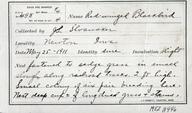 No 498 Name Red-winged Blackbird
Collected by
Locality Newton Iowa
Date May 25-1911 Identity sure Incubation slight
Nest fastened to sedge grass in small
slough along railroad tracks 2 ft. high.
Small colony of six pair breeding here.
Nest deep cup of long dried grass